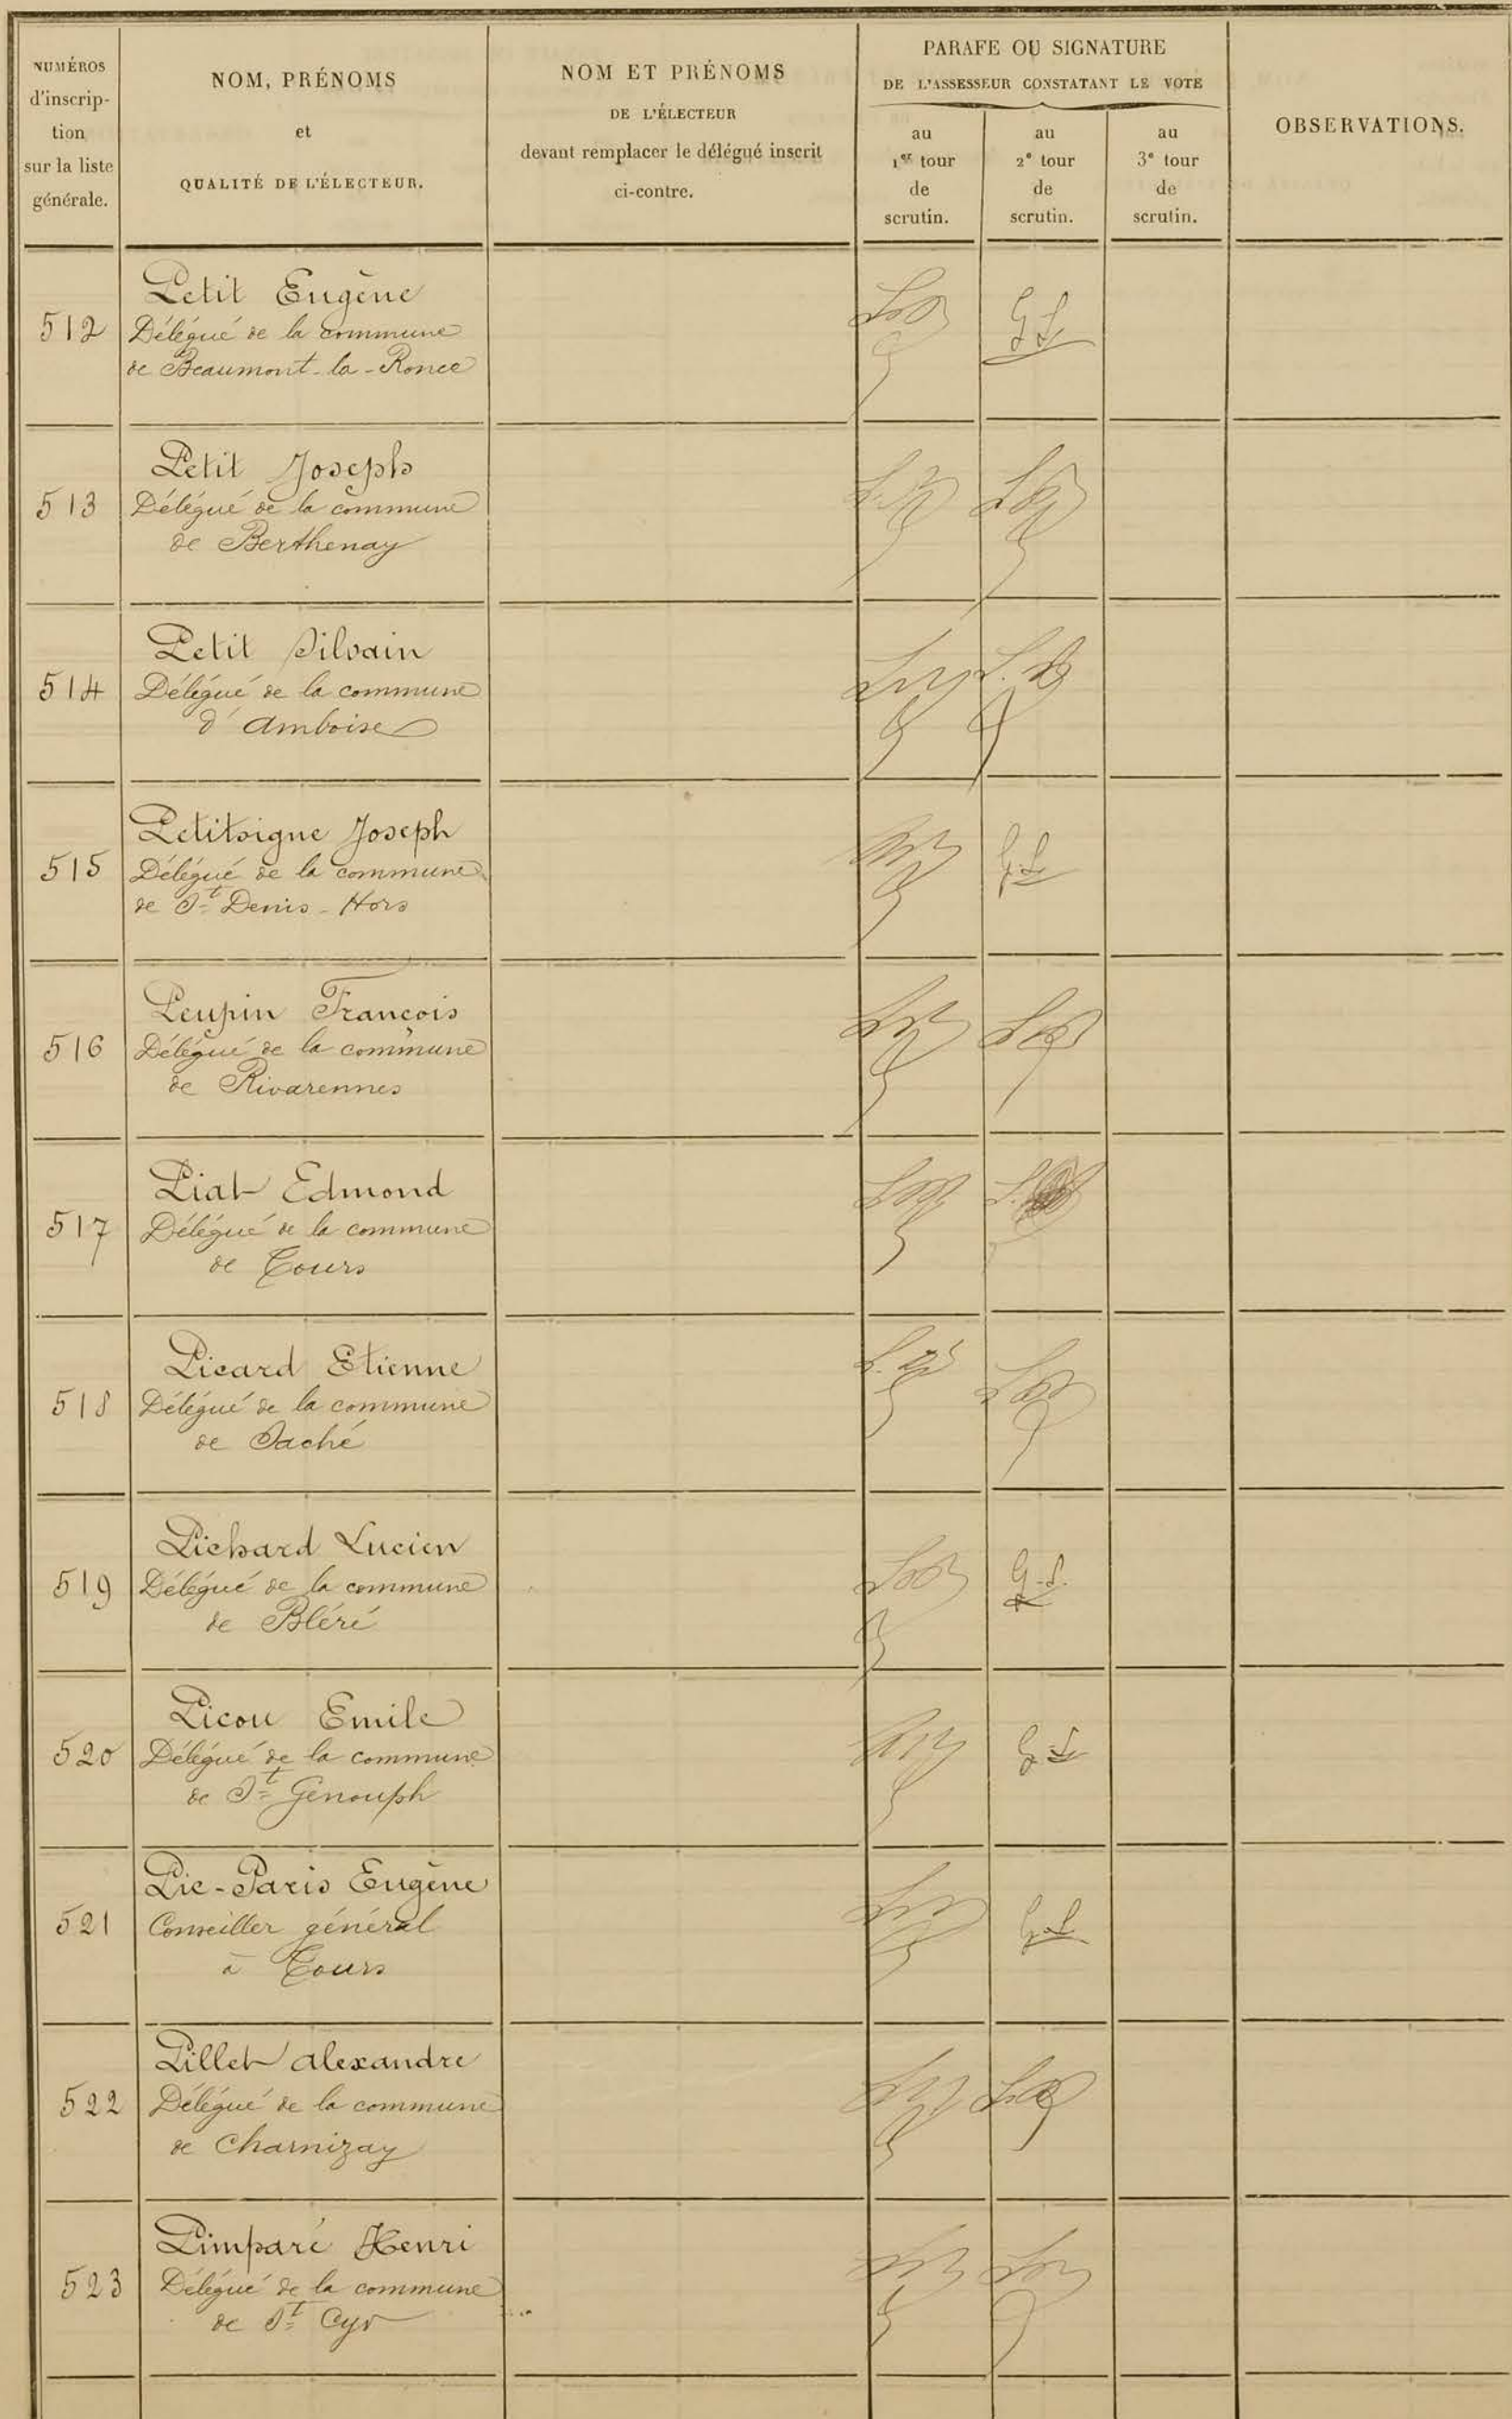 NUMÉROS
d'inscrip-
tion
sur la liste
générale.
NOM, PRÉNOMS
et
QUALITÉ DE L'ÉLECTEUR.
NOM ET PRÉNOMS
DE L'ÉLECTEUR
devant remplacer le délégué inscrit
ci-contre.
PARAFE OU SIGNATURE
DE L'ASSESSEUR CONSTATANT LE VOTE
au
1er tour
de
scrutin.
au
2e tour
de
scrutin.
au
3e tour
de
scrutin.
OBSERVATIONS.
512
Petit Eugène
Délégué de la commune
de Beaumont-la-Ronce
G L
513
Petit Joseph
Délégué de la commune
de Berthenay
514
Petit Silvain
Délégué de la commune
d'Amboise
515
Petitsigne Joseph
Délégué de la commune
de St Denis-Hors
G.L
516
Peupin François
Délégué de la commune
de Rivarennes
517
Piat Edmond
Délégué de la commune
de Tours
518
Picard Etienne
Délégué de la commune
de Saché
519
Pichard Lucien
Délégué de la commune
de Bléré
G.L.
520
Picou Emile
Délégué de la commune
de St Genouph
G L
521
Pic-Paris Eugène
Conseiller général
à Tours
G L
522
Pillet Alexandre
Délégué de la commune
de Charnizay
523
Pimparé Henri
Délégué de la commune
de St Cyr